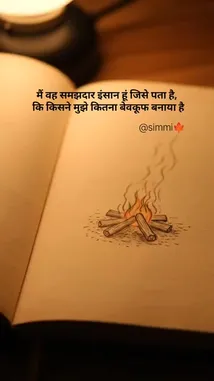 मैं वह समझदार इंसान हूं जिसे पता है,
कि किसने मुझे कितना बेवकूफ बनाया है
@simmi🍁